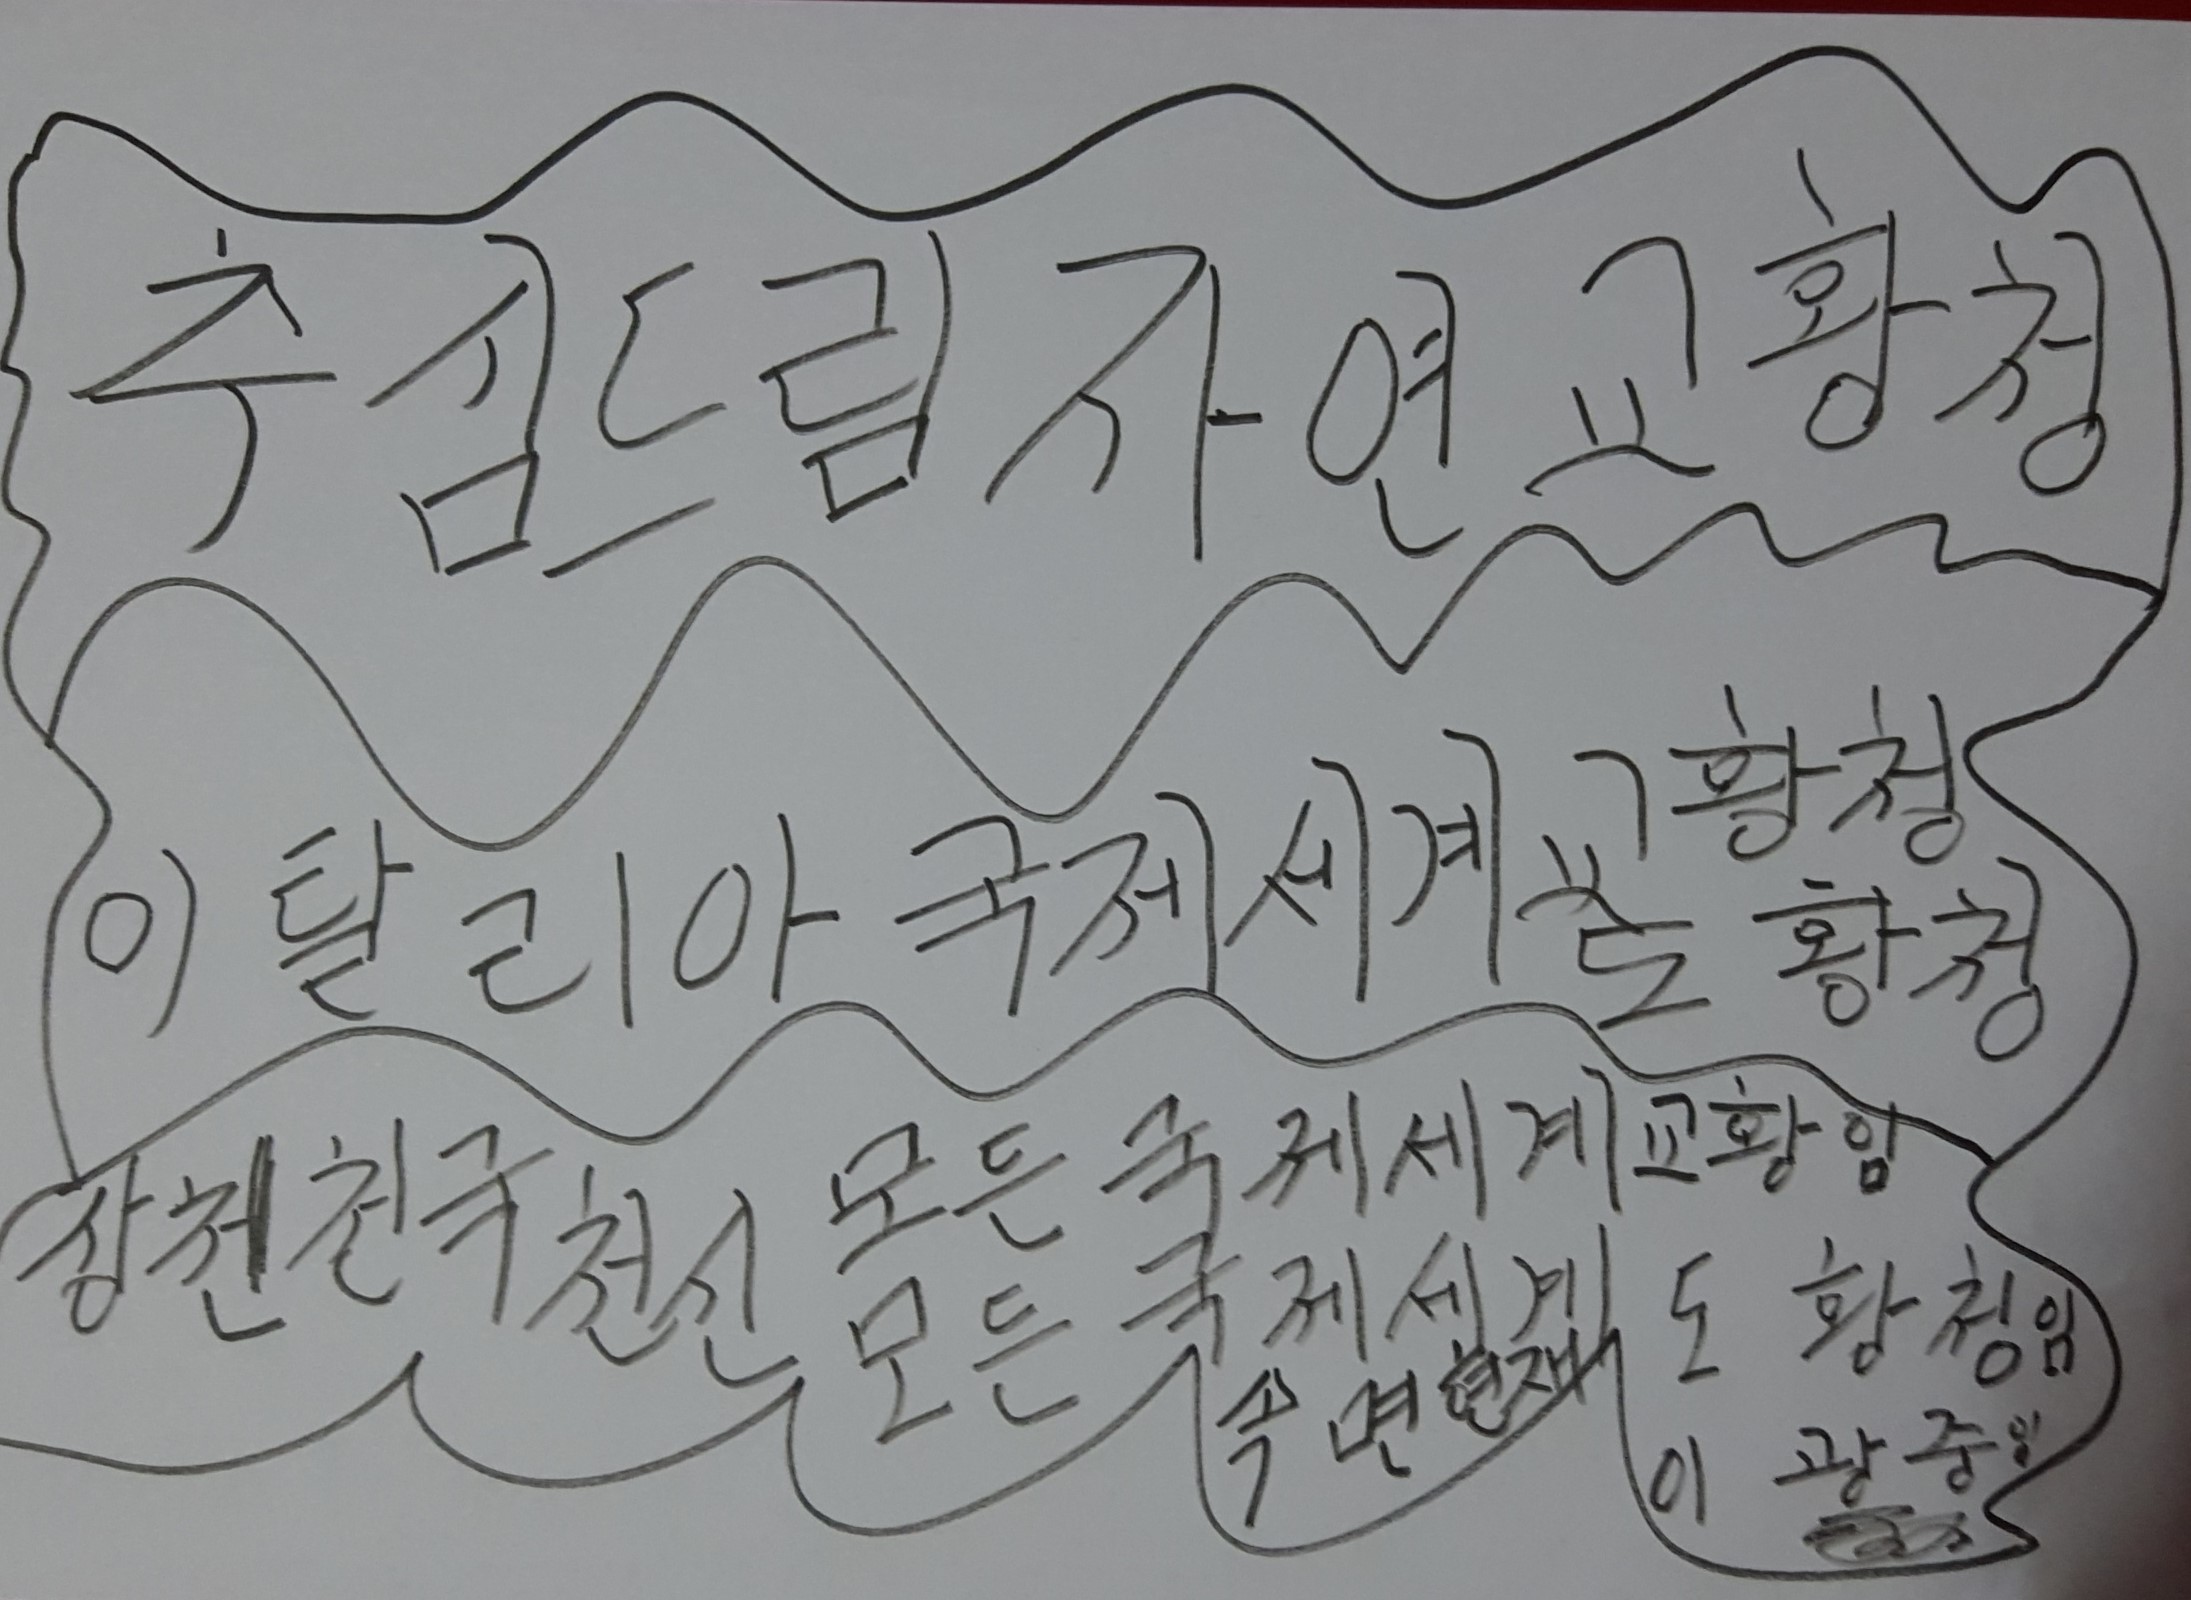 추심드림자연교황청
이탈리아국제세계교황청
도황청
장천천국천신 모든국제세계교황임
모든국제세계 도황청임
수면현재 이광중임